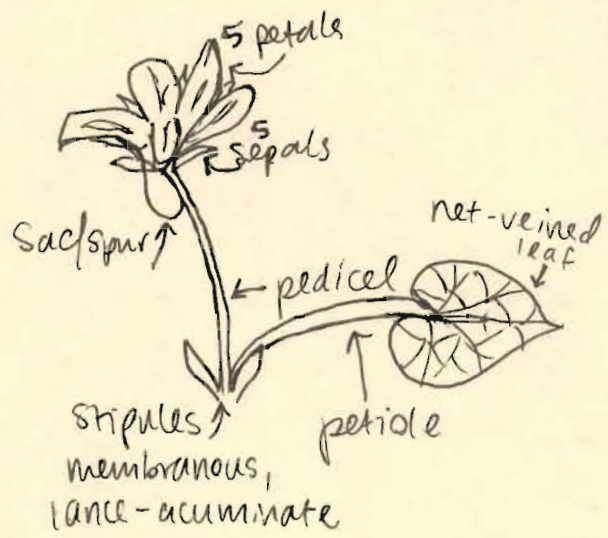 5 petals
5
sepals
Sac/spur
net-veined
leaf
pedicel
petiole
Stipules
membranous,
lance-acuminate